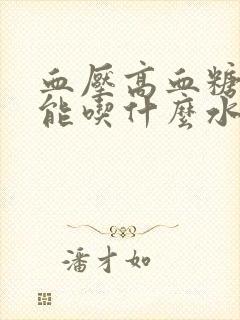 血壓高血糖
能喫什麼水
潘才如